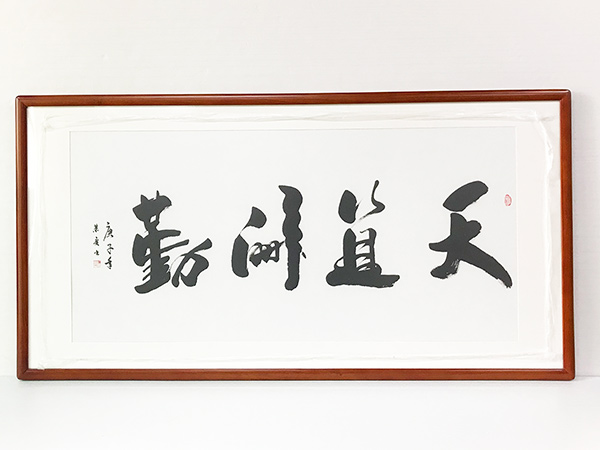 天道酬勤
庚子年